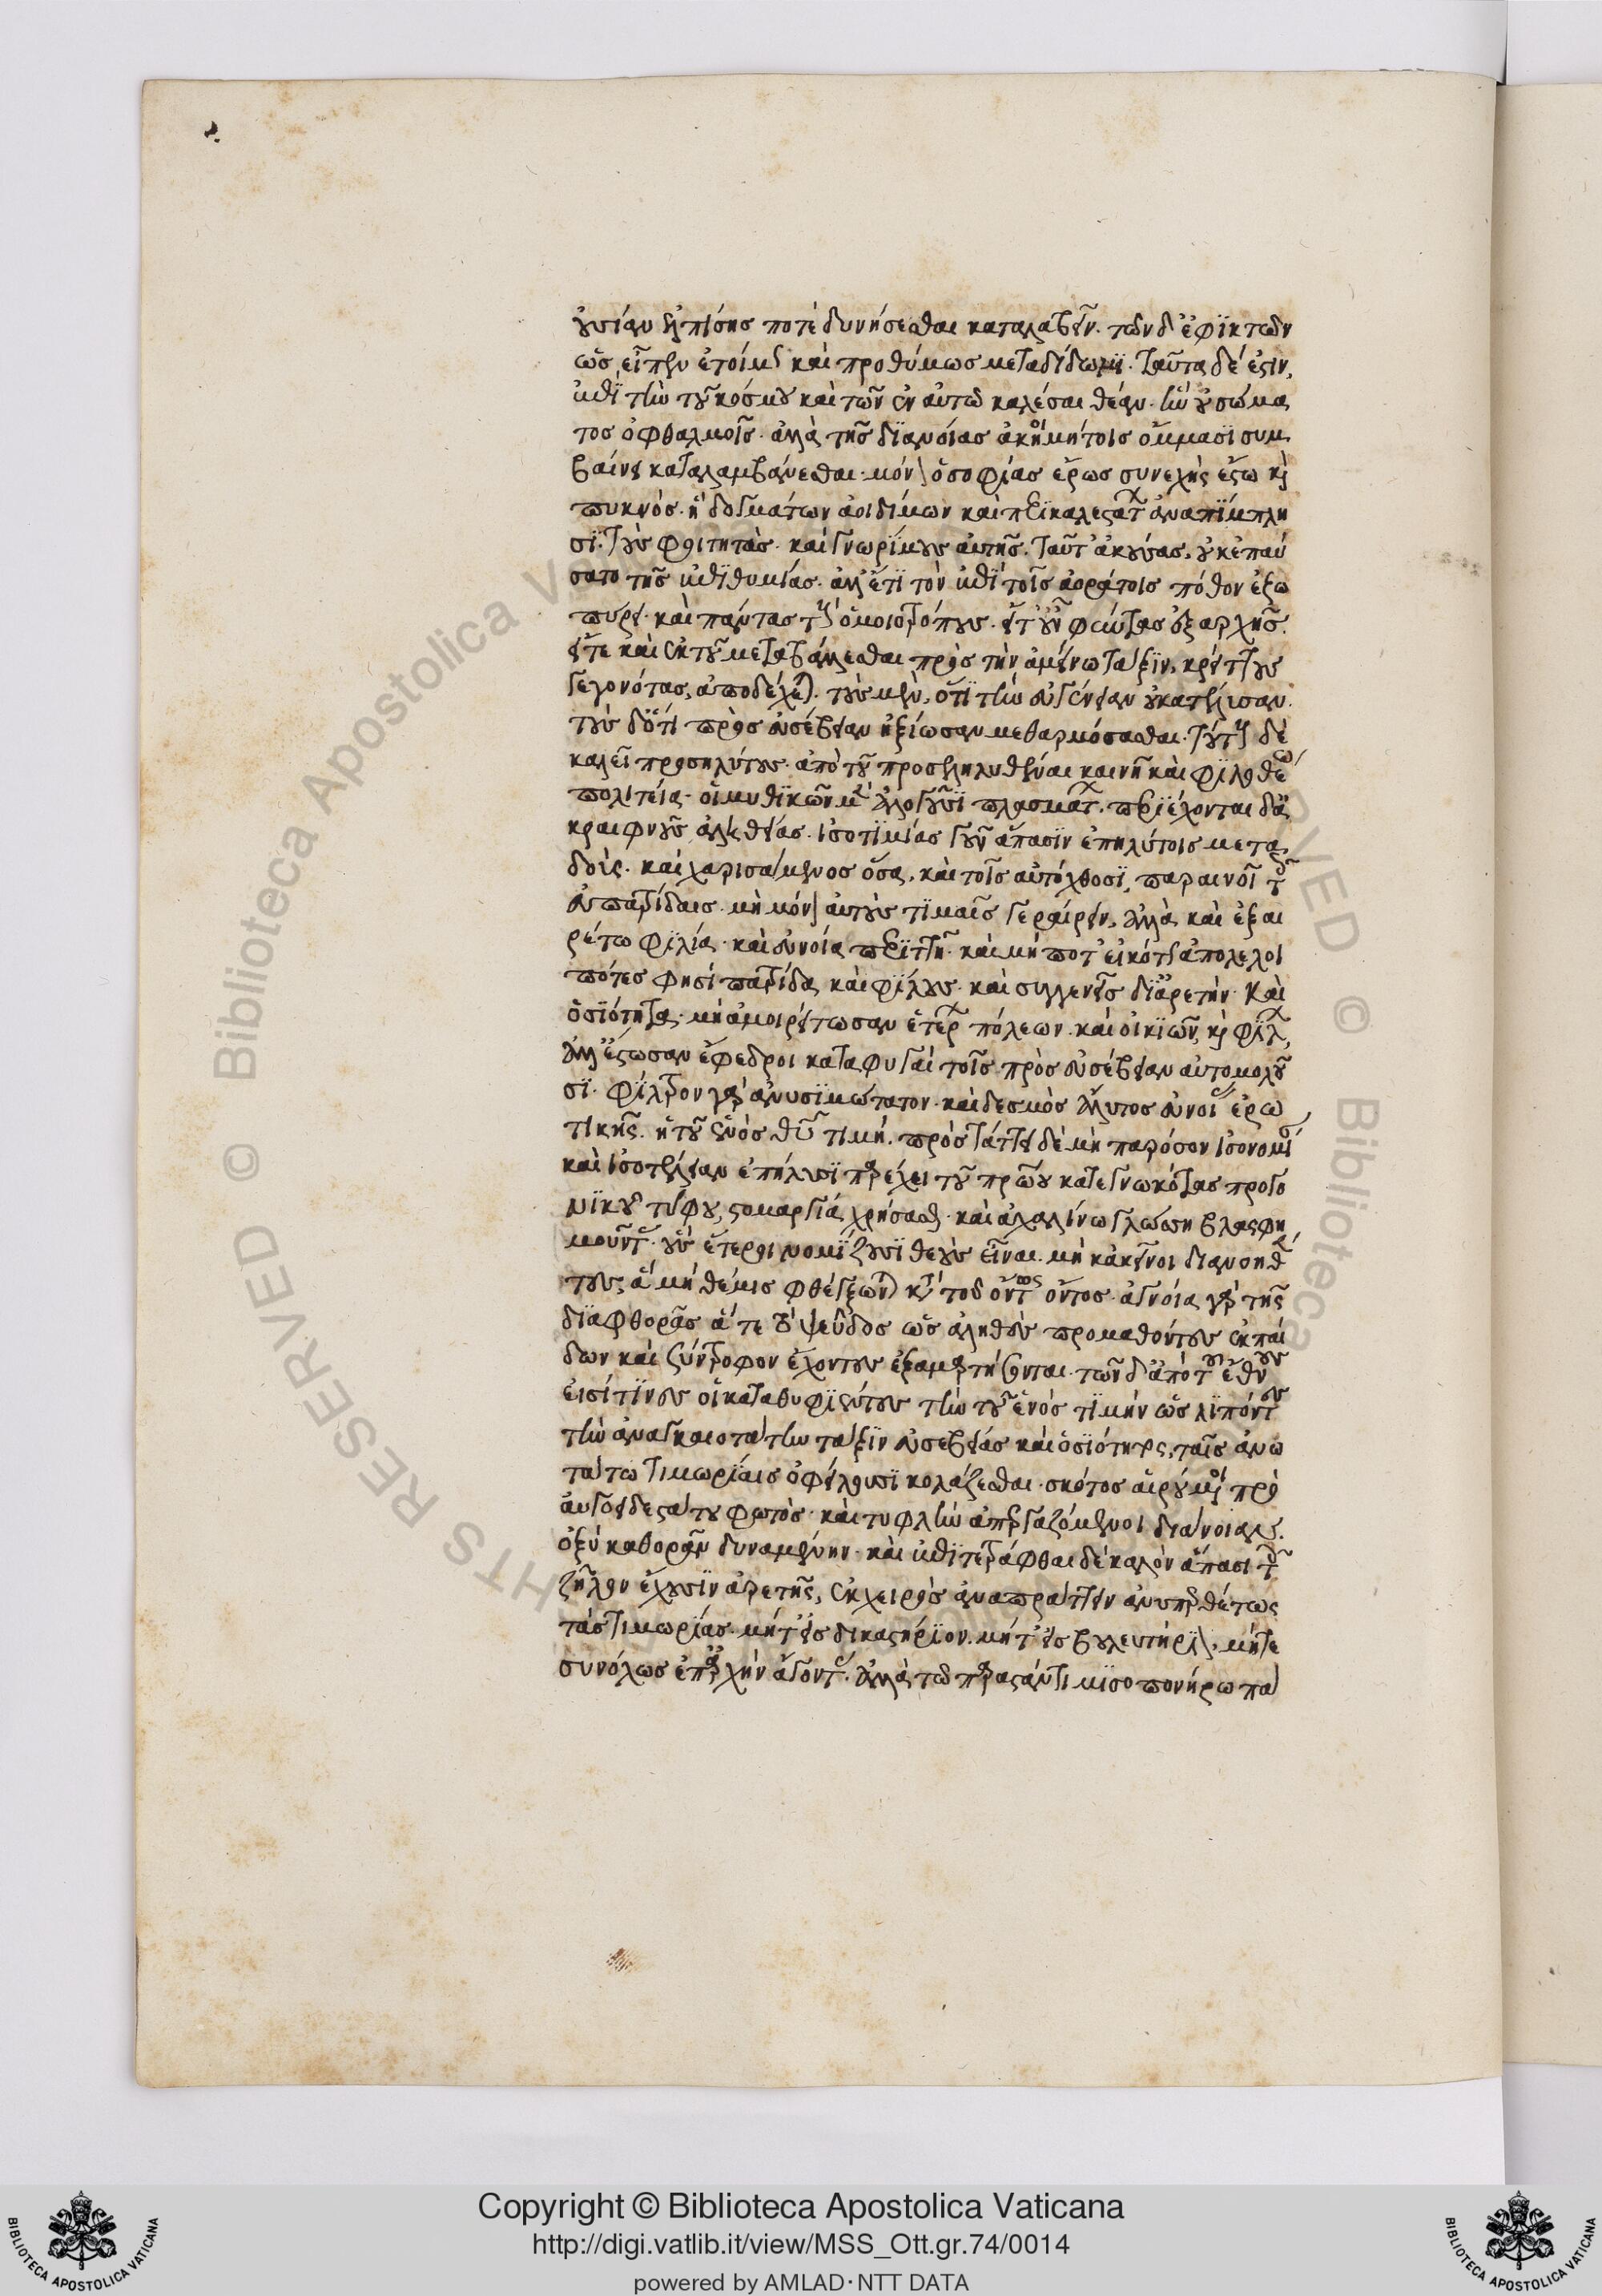 οὐσίαν ἐλπίσῃς ποτὲ δυνήσεσθαι καταλαβεῖν. τῶν δ' ἐφϊκτῶν
ὡς εἶπον ἑτοίμως καὶ προθύμως μεταδίδωμϊ. ταῦτα δέ ἐστιν,
ἐπὶ τὴν τοῦ κόσμου καὶ τῶν ἐν αὐτῶ καλέσαι θέαν. ἣν οὐ σώμα
τος ὀφθαλμοῖς. ἀλλὰ τῆς δϊανοίας ἀκοιμήτοις ὄμμασϊ συμ
βαίνει καταλαμβάνεσθαι. μόνον ὁ σοφίας ἔρως συνεχὴς ἔστω καὶ
πυκνός. ἣ δογμάτων ἀοιδίμων καὶ περϊκαλεστάτων ἀναπίμπλη
σϊ. τοὺς φοιτητὰς. καὶ γνωρίμους αὐτῆς. ταῦτ' ἀκούσας, οὐκ ἐπαύ
σατο τῆς ἐπϊθυμίας. ἀλλ' ἔτϊ τὸν ἐπϊ τοῖς ἀοράτοις πόθον ἐζω
πύρει. καὶ πάντας τοὺς ὁμοιοτρόπους. εἴτ' οὖν φύντας ἐξ αρχῆς.
εἴτε καὶ ἐκ τοῦ μεταβάλλεσθαι πρὸς τὴν ἀμείνω τάξϊν, κρείττους
γεγονότας, ἀποδέχεται. τοὺς μὲν, ὅτϊ τὴν εὐγένειαν οὐ κατέλυσαν.
τοὺς δ' ὅτϊ πρὸς εὐσέβειαν ἠξίωσαν μεθαρμόσασθαι. τούτους δὲ
καλεῖ προσηλύτους. ἀπὸ τοῦ προσεληλυθέναι καινῇ καὶ φϊλοθέω
πολιτεία. οἳ μυθϊκῶν μὲν ἀλογοῦσϊ πλασμάτων. περϊέχονται δὲ ἀ
κραιφνοῦς ἀληθείας. ἰσοτϊμίας γοῦν ἅπασϊν ἐπηλύτοις μετα
δοὺς. καὶ χαρισάμενος ὅσα. καὶ τοῖς αὐτόχθοσϊ, παραινεῖ τοῖς
εὐπατρίδαις. μὴ μόνον αὐτοὺς τϊμαῖς γεραίρειν, ἀλλὰ καὶ ἐξαι
ρέτω φϊλία. καὶ εὐνοία περϊττῇ. καὶ μή ποτ' εἰκότως ἀπολελοι
πότες φησὶ πατρίδα καὶ φϊλους. καὶ συγγενεῖς δϊ' ἀρετὴν. Καὶ
ὁσϊότητα. μὴ ἀμοιρείτωσαν ἑτέρων πόλεων. καὶ οἰκϊῶν, καὶ φϊλων,
ἀλλ' ἔστωσαν ἔφεδροι καταφυγαὶ τοῖς πρὸς εὐσέβειαν αὐτομολοῦ
σϊ. φϊλτρον γὰρ ἀνυσϊμώτατον. καὶ δεσμὸς ἄλυτος εὐνοίας ἐρω
τικῆς. ἡ τοῦ ἑνὸς θεοῦ τιμή. προστάττει δὲ μὴ παρόσον ἰσονομίαν
καὶ ἰσοτέλειαν ἐπήλυσϊ παρέχει τοῦ πρώτου κατεγνωκότας προγο
νϊκοῦ τύφου, στομαργία χρήσασθαι. καὶ ἀχαλίνω γλώσσῃ βλασφη
μοῦντες. οὓς ἕτεροι νομϊζουσϊ θεοὺς εἶναι. μὴ κἀκεῖνοι διανοηθέν
τες, ἃ μὴ θέμις φθέγξωνται κατὰ τοῦ ὄντως ὄντος. ἀγνοία γὰρ τῆς
δϊαφθορᾶς ἅτε τὸ ψεῦδος ὡς ἀληθὲς προμαθόντες ἐκ παί
δων καὶ σύντροφον ἔχοντες ἐξαμαρτήσονται. τῶν δ' ἀπὸ τοῦ ἔθνους
εἰσί τϊνες οἳ καταθυφϊέντες τὴν τοῦ ἑνὸς τϊμήν ὡς λϊπόντες
τὴν ἀναγκαιοτάτην τάξϊν εὐσεβείας καὶ ὁσϊότητος, ταῖς ἀνω
τάτω τιμωρίαις ὀφείλουσϊ κολάζεσθαι. σκότος αἱρούμενοι πρὸ
αὐγοειδεστάτου φωτὸς. καὶ τυφλὴν ἀπεργαζόμενοι διάνοιαν.
ὀξὺ καθορᾶν δυναμένην. καὶ ἐπϊτετράφθαι δὲ καλὸν ἅπασι τοῖς
ζῆλον ἔχουσϊν ἀρετῆς, ἐκ χειρὸς ἀναπράττειν ἀνυπερθέτως
τὰς τιμωρίας. μήτ' εἰς δικαστήρϊον. μήτ' εἰς βουλευτήρϊον, μήτε
συνόλως ἐπ' ἀρχὴν ἄγοντας. ἀλλὰ τῶ παραστάντι μϊσοπονήρω πά
Copyright © Biblioteca Apostolica Vaticana
http://digi.vatlib.it/view/MSS_Ott.gr.74/0014
powered by AMLAD·NTT DATA